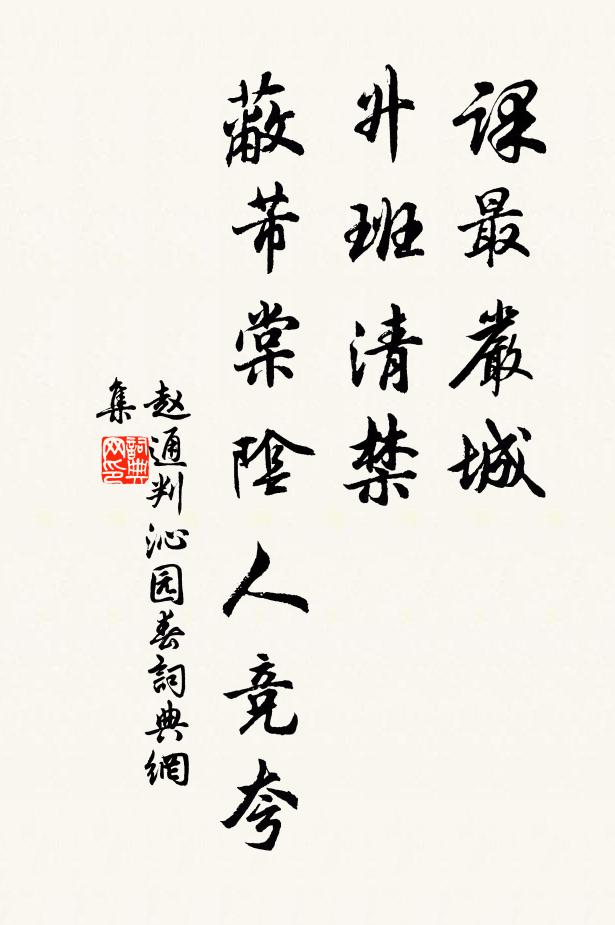 課最嚴城
升班清禁
蔽芾棠陰人竞夸
赵通判沁园春詞典網
集
詞典
网印